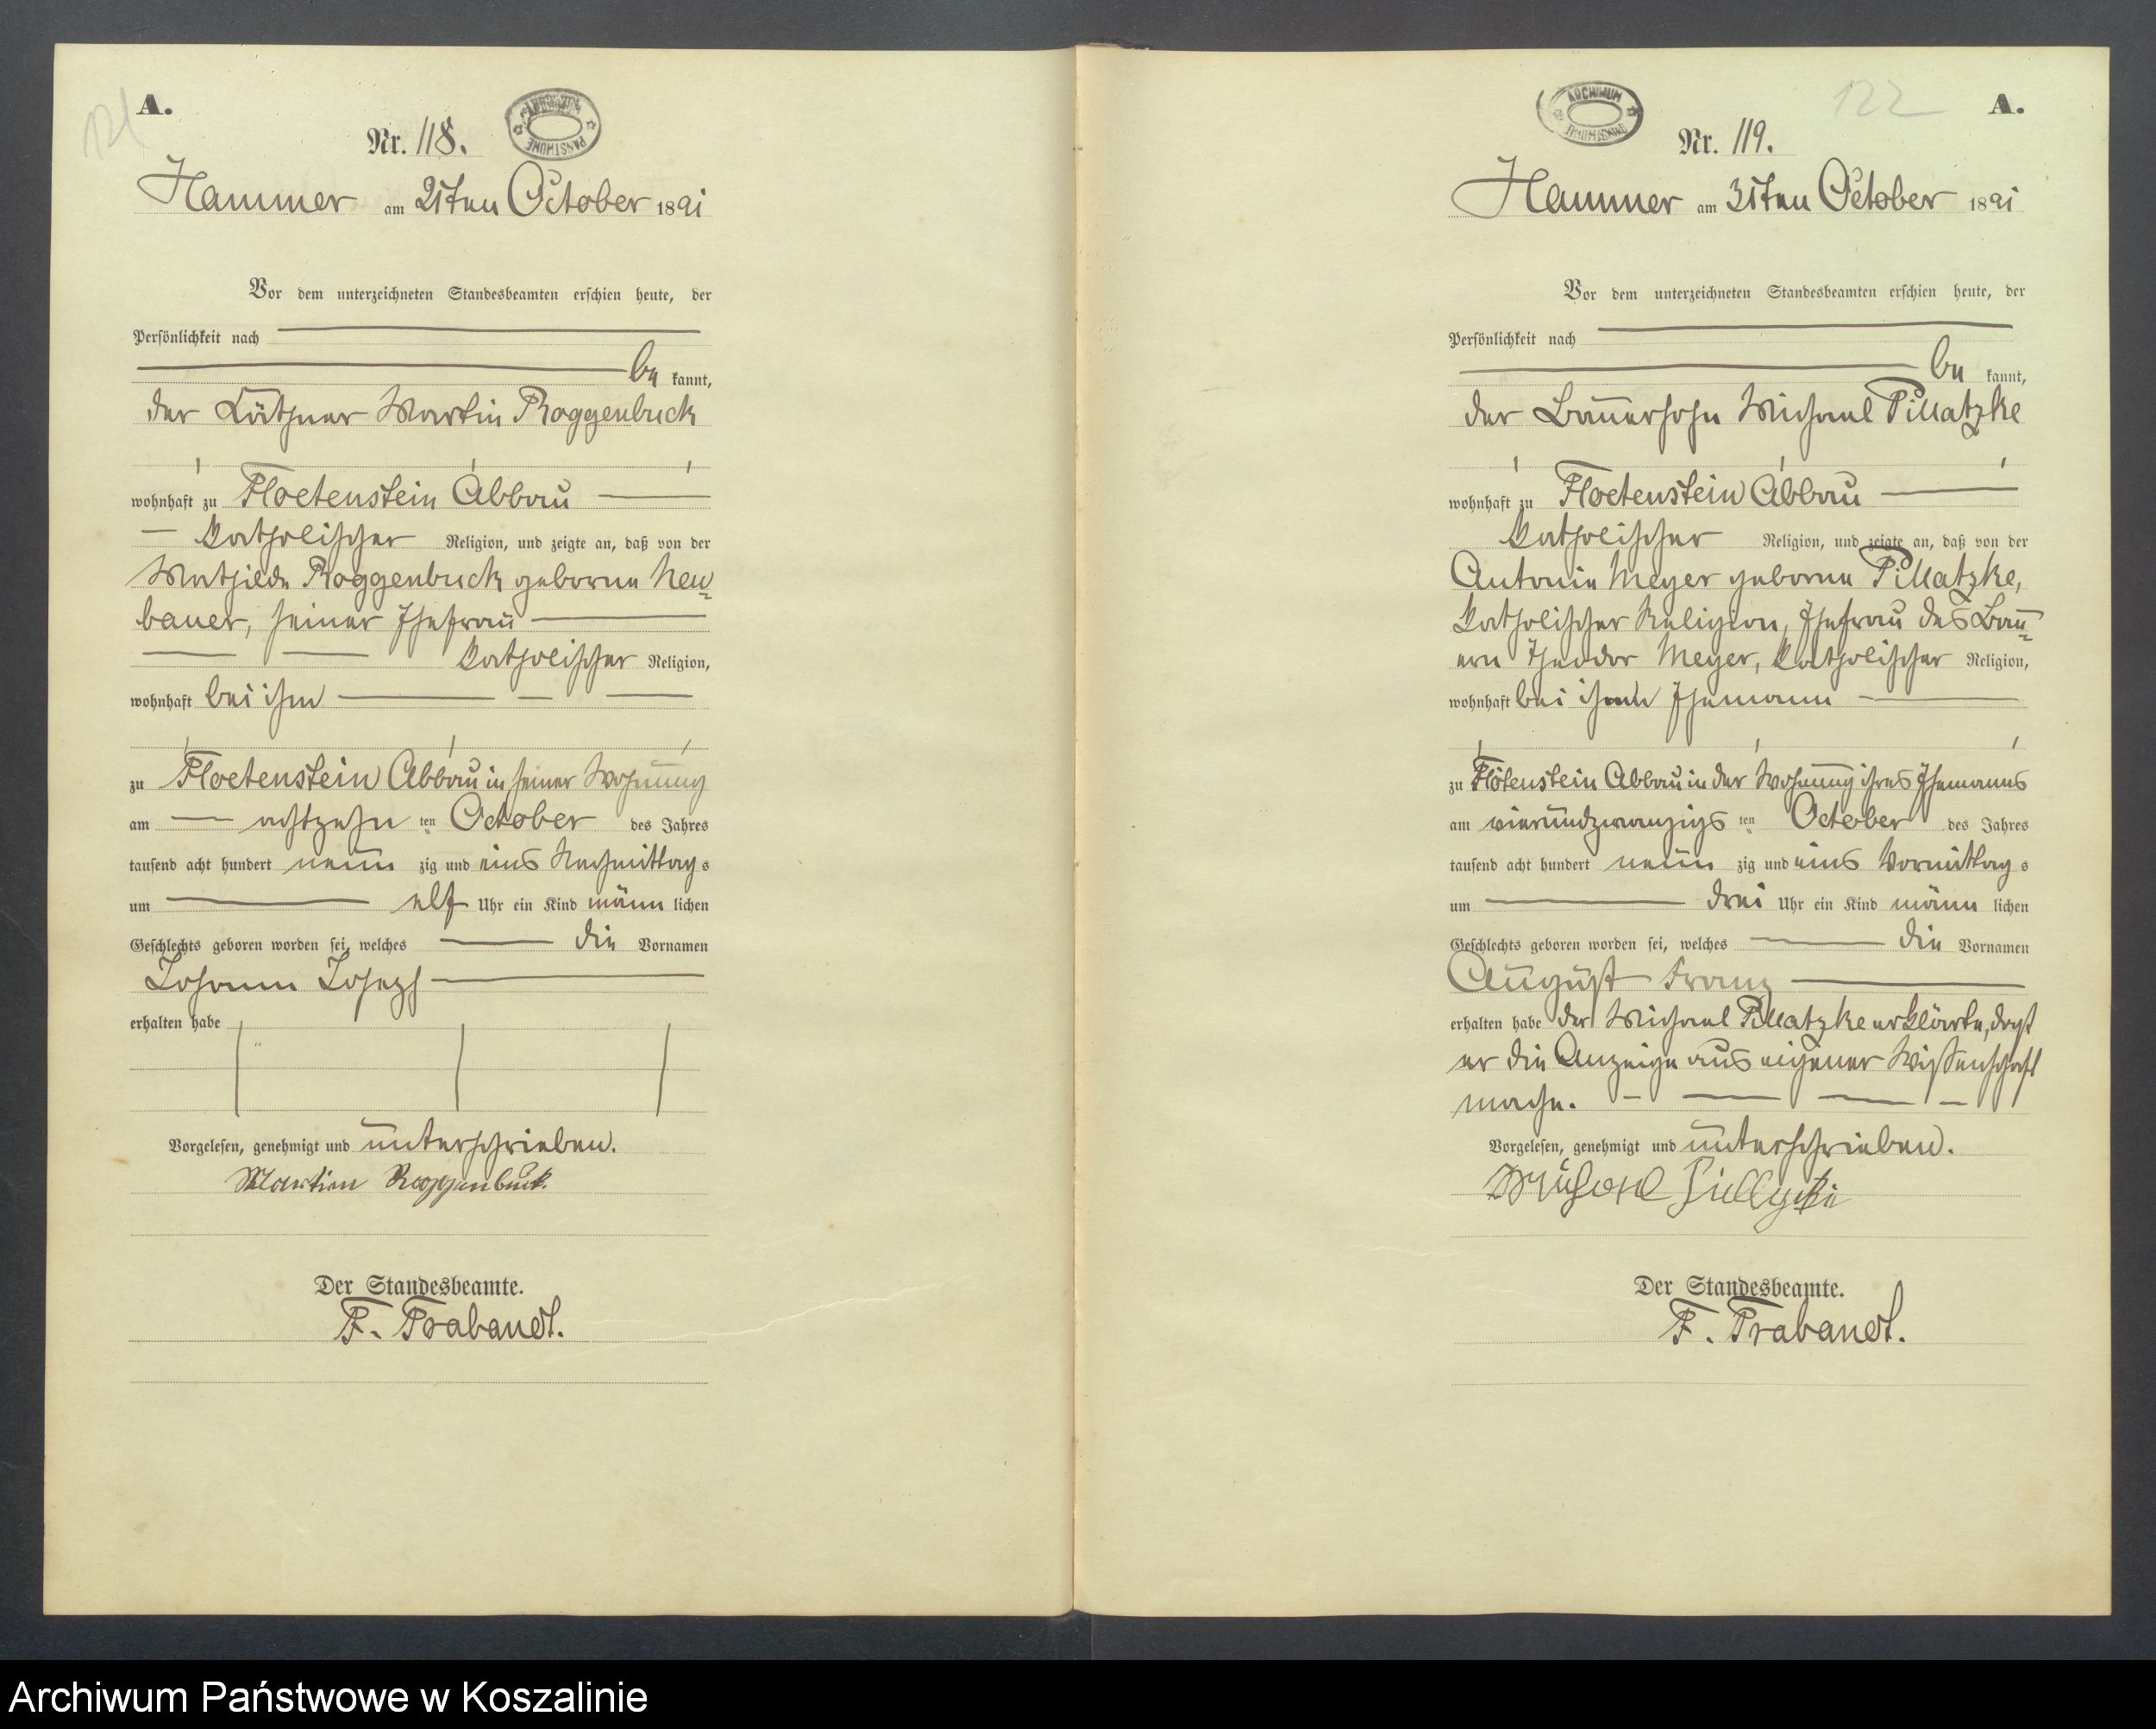 A.
121
Nr. 118.
Hammer am 21ten October 1891
Vor dem unterzeichneten Standesbeamten erschien heute, der
Persönlichkeit nach
be kannt,
der Käthner Martin Roggenbuck
wohnhaft zu Floetenstein Abbau
katholischer Religion, und zeigte an, daß von der
Mathilde Roggenbuck geborne Neu=
bauer, seiner Ehefrau
katholischer Religion,
wohnhaft bei ihm
zu Floetenstein Abbau in seiner Wohnung
am achtzehn ten October des Jahres
tausend acht hundert neun zig und eins Nachmittag s
um elf Uhr ein Kind männ lichen
Geschlechts geboren worden sei, welches die Vornamen
Johann Joseph
erhalten habe
Vorgelesen, genehmigt und unterschrieben.
Martin Roggenbuck.
Der Standesbeamte.
F. Trabandt.
ARCHIWUM PAŃSTWOWE
122
A.
Nr. 119.
Hammer am 31ten October 1891
Vor dem unterzeichneten Standesbeamten erschien heute, der
Persönlichkeit nach
be kannt,
der Bauersohn Michael Pillatzke
wohnhaft zu Floetenstein Abbau
katholischer Religion, und zeigte an, daß von der
Antonie Meyer geborne Pillatzke,
katholischer Religion, Ehefrau des Bau=
ern Theodor Meyer, katholischer Religion,
wohnhaft bei ihrem Ehemann
zu Flötenstein Abbau in der Wohnung ihres Ehemanns
am vierundzwanzigs ten October des Jahres
tausend acht hundert neun zig und eins Vormittag s
um drei Uhr ein Kind männ lichen
Geschlechts geboren worden sei, welches die Vornamen
August Franz
erhalten habe der Michael Pillatzke erklärte, daß
er die Anzeige aus eigener Wissenschaft
mache.
Vorgelesen, genehmigt und unterschrieben.
Michael
Der Standesbeamte.
F. Trabandt.
ARCHIWUM
Archiwum Państwowe w Koszalinie